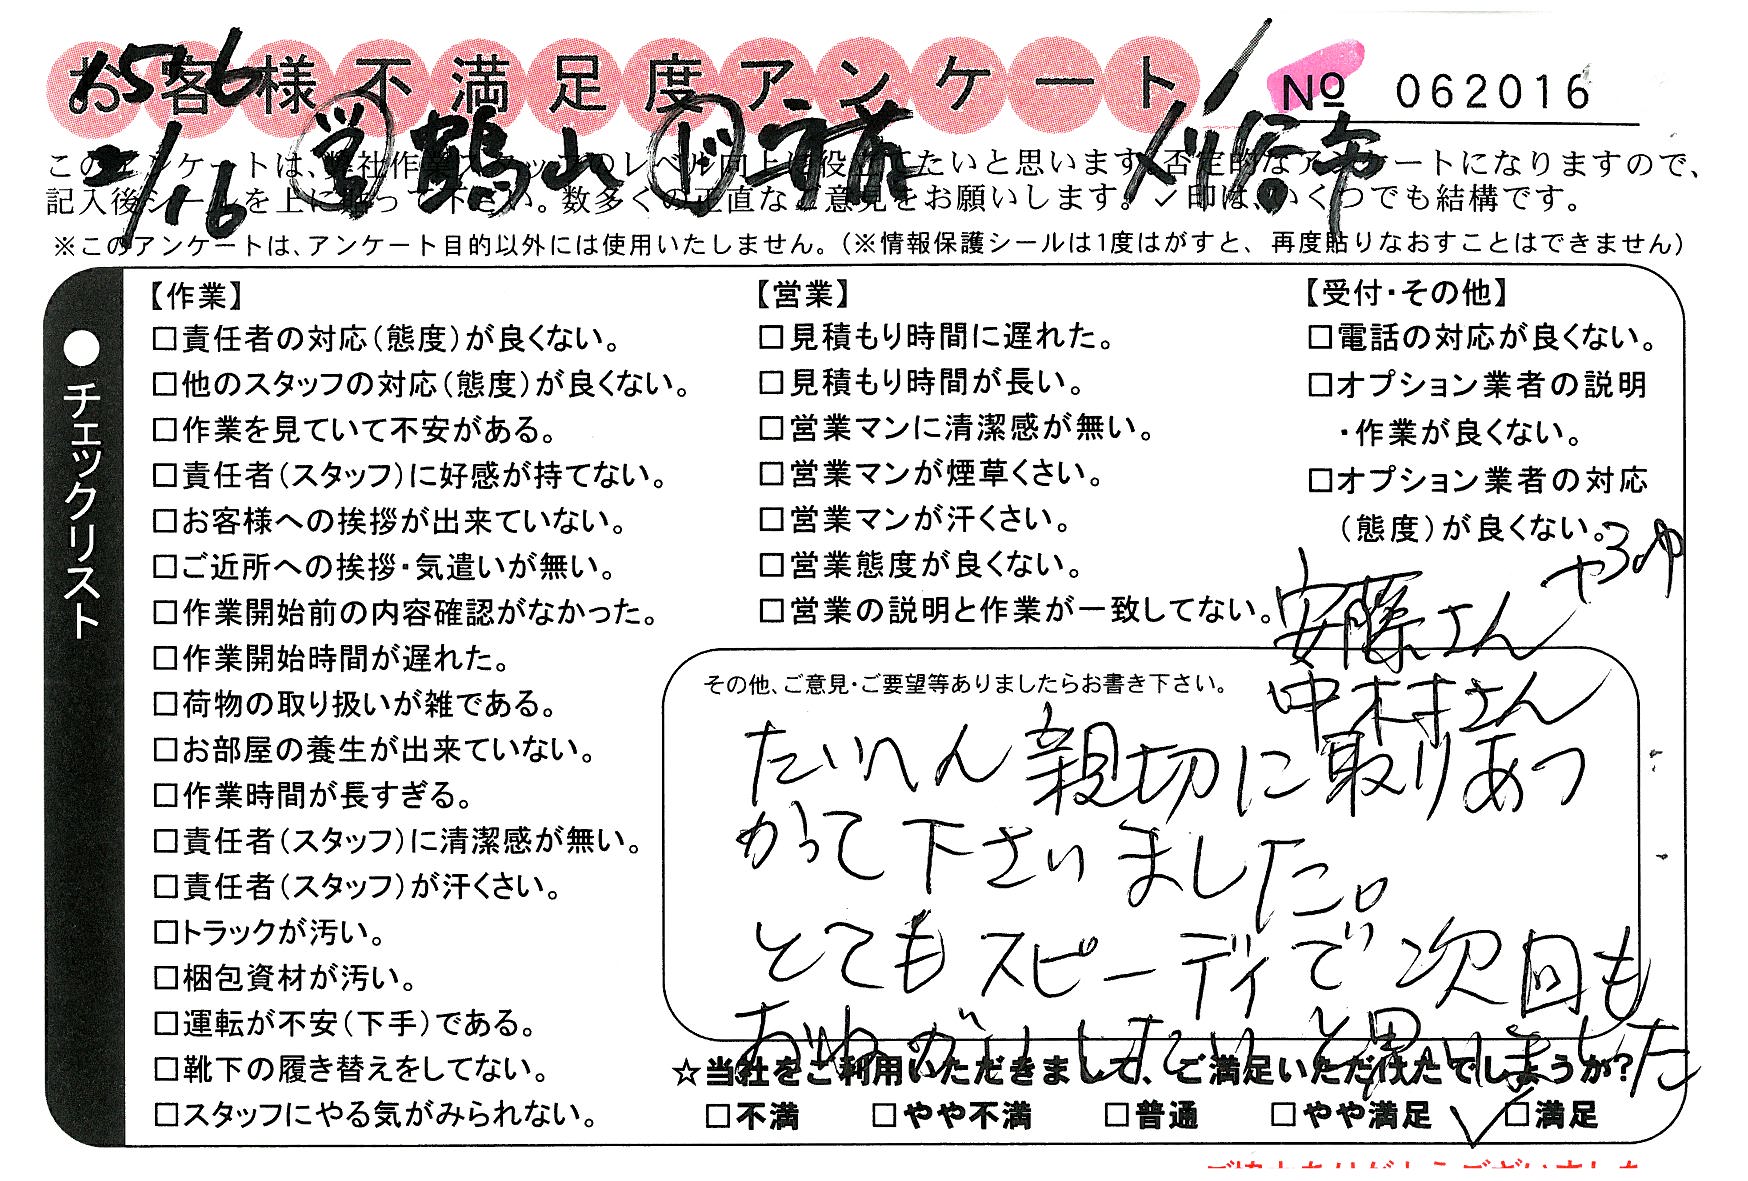 お客様不満足度アンケート
No 062016
1576
2/16 営 鶴山
このアンケートは、弊社作業スタッフのレベル向上に役立てたいと思います。否定的なアンケートになりますので、
記入後シールを上に貼って下さい。数多くの正直なご意見をお願いします。✓印は、いくつでも結構です。
※このアンケートは、アンケート目的以外には使用いたしません。（※情報保護シールは1度はがすと、再度貼りなおすことはできません）
●チェックリスト
【作業】
□責任者の対応（態度）が良くない。
□他のスタッフの対応（態度）が良くない。
□作業を見ていて不安がある。
□責任者（スタッフ）に好感が持てない。
□お客様への挨拶が出来ていない。
□ご近所への挨拶・気遣いが無い。
□作業開始前の内容確認がなかった。
□作業開始時間が遅れた。
□荷物の取り扱いが雑である。
□お部屋の養生が出来ていない。
□作業時間が長すぎる。
□責任者（スタッフ）に清潔感が無い。
□責任者（スタッフ）が汗くさい。
□トラックが汚い。
□梱包資材が汚い。
□運転が不安（下手）である。
□靴下の履き替えをしてない。
□スタッフにやる気がみられない。
【営業】
□見積もり時間に遅れた。
□見積もり時間が長い。
□営業マンに清潔感が無い。
□営業マンが煙草くさい。
□営業マンが汗くさい。
□営業態度が良くない。
□営業の説明と作業が一致してない。
【受付・その他】
□電話の対応が良くない。
□オプション業者の説明
・作業が良くない。
□オプション業者の対応
（態度）が良くない。
安藤さん
中村さん
その他、ご意見・ご要望等ありましたらお書き下さい。
たいへん親切に取りあつ
かって下さいました。
とてもスピーディで次回も
おねがいしたいと思いました
☆当社をご利用いただきまして、ご満足いただけたでしょうか？
□不満 □やや不満 □普通 □やや満足 ✓□満足
ご協力ありがとうございました